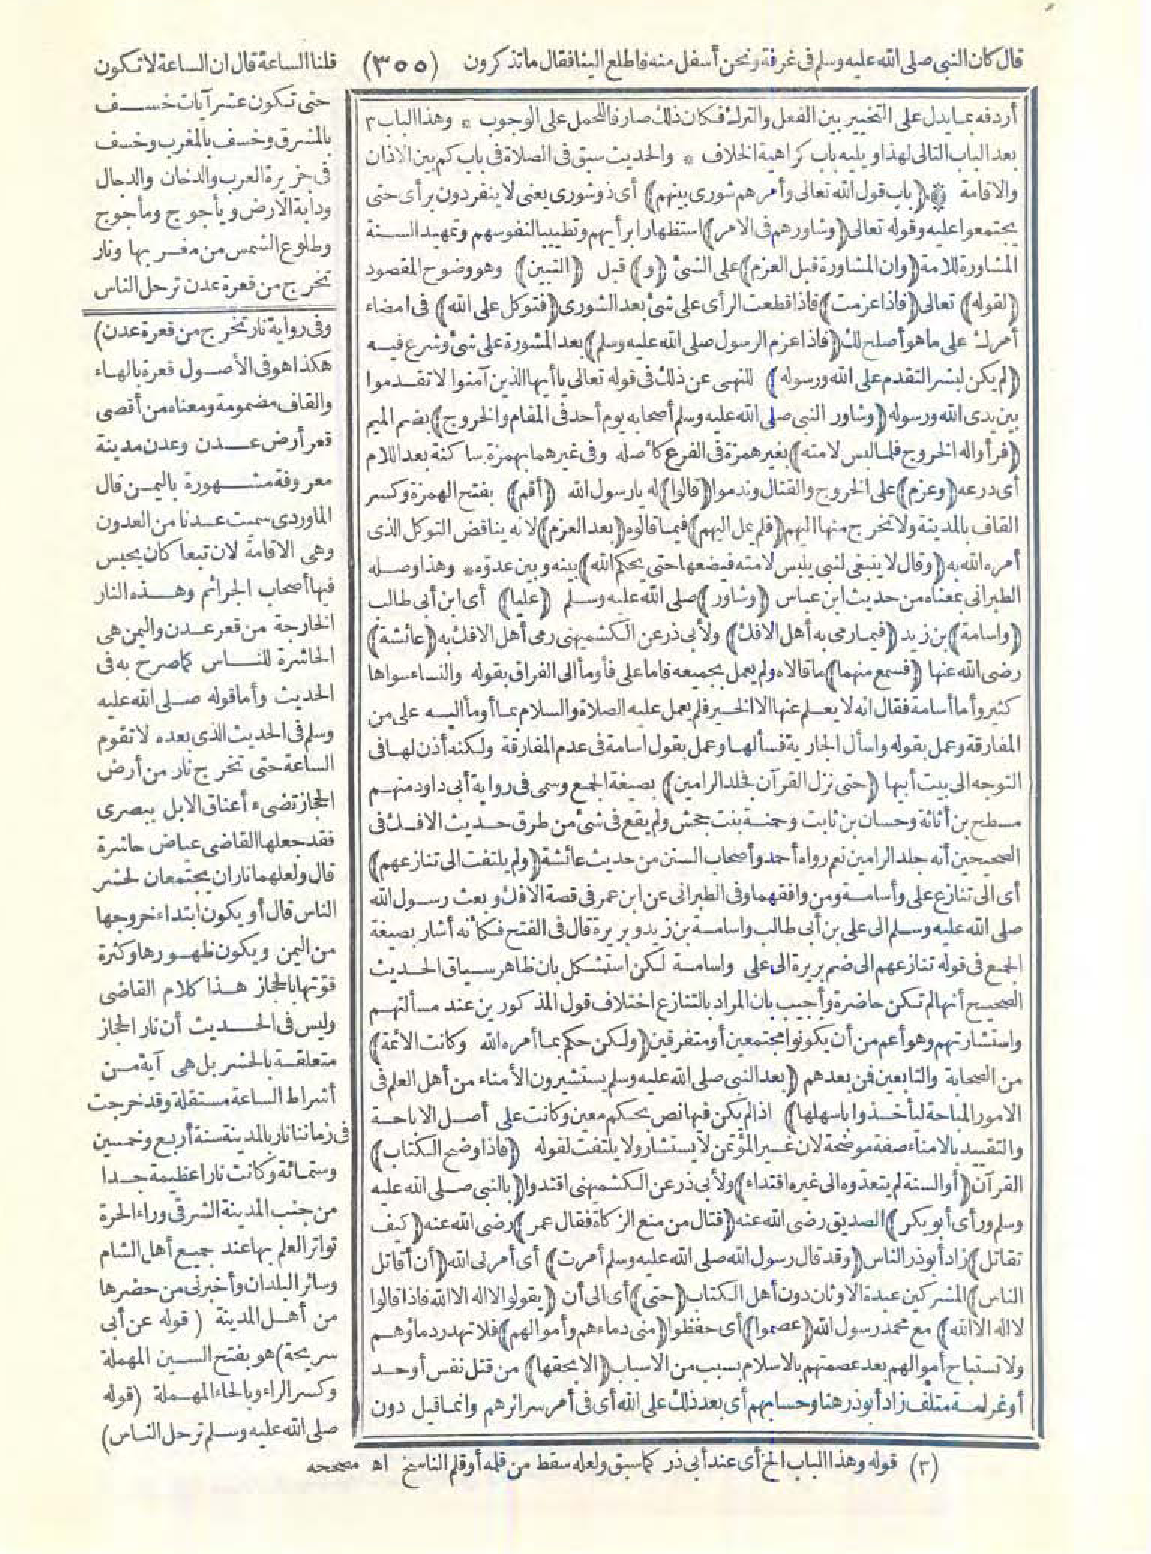 قال كان النبي صلى الله عليه وسلم في غرفة ونحن أسفل منه فاطلع الينا فقال ماتذكرون (٣٥٥) قلنا الساعة قال ان الساعة لا تكون
أردفه بما يدل على التخيير بين الفعل والترك فكان ذلك صارفا للحمل على الوجوب * وهذا الباب ٣
بعد الباب التالى لهذا ويليه باب كراهية الخلاف * والحديث سبق فى الصلاة فى باب كم بين الاذان
والاقامة * (باب قول الله تعالى وأمرهم شورى بينهم) أى ذوشورى يعنى لا ينفردون برأى حتى
يجتمعوا عليه وقوله تعالى (وشاورهم فى الامر) استظهارا برأيهم وتطييبا لنفوسهم وتمهيدا لسنة
المشاورة للامة (وان المشاورة قبل العزم) على الشئ (و) قبل (التبين) وهو وضوح المقصود
(لقوله) تعالى (فاذا عزمت) فاذا قطعت الرأى على شئ بعد الشورى (فتوكل على الله) فى امضاء
أمرك على ما هو أصلح لك (فاذا عزم الرسول صلى الله عليه وسلم) بعد المشورة على شئ وشرع فيه
(لم يكن لبشر التقدم على الله ورسوله) للنهى عن ذلك فى قوله تعالى يا أيها الذين آمنوا لا تقدموا
بين يدى الله ورسوله (وشاور النبى صلى الله عليه وسلم أصحابه يوم أحد فى المقام والخروج) بضم الميم
(فرأوا له الخروج فلما لبس لامته) بغير همزة فى الفرع كأصله وفى غيرهما بهمزة ساكنة بعد اللام
أى درعه (وعزم) على الخروج والقتال وندموا (قالوا) له يارسول الله (أقم) بفتح الهمزة وكسر
القاف بالمدينة ولا تخرج منها اليهم (فلم يمل اليهم) فيما قالوه (بعد العزم) لانه يناقض التوكل الذى
أمره الله به (وقال لا ينبغى لنبى يلبس لامته فيضعها حتى يحكم الله) بينه وبين عدوّه * وهذا وصله
الطبرانى بمعناه من حديث ابن عباس (وشاور) صلى الله عليه وسلم (عليا) أى ابن أبى طالب
(واسامة) بن زيد (فيما رمى به أهل الافك) ولأبى ذر عن الكشميهنى رمى أهل الافك به (عائشة)
رضى الله عنها (فسمع منهما) ما قالاه ولم يعمل بجميعه فاما على فأومأ الى الفراق بقوله والنساء سواها
كثير وأما أسامة فقال انه لا يعلم عنها الا الخير فلم يعمل عليه الصلاة والسلام بما أومأ اليه على من
المفارقة وعمل بقوله واسأل الجارية فسألها وعمل بقول اسامة فى عدم المفارقة ولكنه أذن لها فى
التوجه الى بيت أبيها (حتى نزل القرآن فجلد الرامين) بصيغة الجمع وسمى فى رواية أبى داود منهم
مسطح بن أثاثة وحسان بن ثابت وحمنة بنت جحش ولم يقع فى شئ من طرق حديث الافك فى
الصحيحين أنه جلد الرامين نعم رواه أحمد وأصحاب السنن من حديث عائشة (ولم يلتفت الى تنازعهم)
أى الى تنازع على وأسامة ومن وافقهما وفى الطبرانى عن ابن عمر فى قصة الافك وبعث رسول الله
صلى الله عليه وسلم الى على بن أبى طالب واسامة بن زيد وبريرة قال فى الفتح فكأنه أشار بصيغة
الجمع فى قوله تنازعهم الى ضم بريرة الى على واسامة لكن استشكل بان ظاهر سياق الحديث
الصحيح أنها لم تكن حاضرة وأجيب بان المراد بالتنازع اختلاف قول المذكورين عند مسألتهم
واستشارتهم وهو أعم من أن يكونوا مجتمعين أو متفرقين (ولكن حكم بما أمره الله وكانت الأئمة)
من الصحابة والتابعين فمن بعدهم (بعد النبى صلى الله عليه وسلم يستشيرون الأمناء من أهل العلم فى
الامور المباحة ليأخذوا باسهلها) اذا لم يكن فيها نص بحكم معين وكانت على أصل الاباحة
والتقييد بالامناء صفة موضحة لان غير المؤتمن لا يستشار ولا يلتفت لقوله (فاذا وضح الكتاب)
القرآن (أو السنة لم يتعدوه الى غيره اقتداء) ولأبى ذر عن الكشميهنى اقتدوا (بالنبى صلى الله عليه
وسلم ورأى أبو بكر) الصديق رضى الله عنه (قتال من منع الزكاة فقال عمر) رضى الله عنه (كيف
تقاتل) زاد أبو ذر الناس (وقد قال رسول الله صلى الله عليه وسلم أمرت) أى أمرنى الله (أن أقاتل
الناس) المشركين عبدة الاوثان دون أهل الكتاب (حتى) أى الى أن (يقولوا لا اله الا الله فاذا قالوا
لا اله الا الله) مع محمد رسول الله (عصموا) أى حفظوا (منى دماءهم وأموالهم) فلا تهدر دماؤهم
ولا تستباح أموالهم بعد عصمتهم بالاسلام بسبب من الاسباب (الا بحقها) من قتل نفس أو حد
أو غرامة متلف زاد أبو ذر هنا وحسابهم أى بعد ذلك على الله أى فى أمر سرائرهم وانما قيل دون
حتى تكون عشر آيات خسف
بالمشرق وخسف بالمغرب وخسف
فى جزيرة العرب والدخان والدجال
ودابة الارض ويأجوج ومأجوج
وطلوع الشمس من مغربها ونار
تخرج من قعرة عدن ترحل الناس
وفى رواية نار تخرج من قعرة عدن)
هكذا هو فى الأصول قعرة بالهاء
والقاف مضمومة ومعناه من أقصى
قعر أرض عدن وعدن مدينة
معروفة مشهورة باليمن قال
الماوردى سميت عدنا من العدون
وهى الاقامة لان تبعا كان يحبس
فيها أصحاب الجرائم وهذه النار
الخارجة من قعر عدن واليمن هى
الحاشرة للناس كما صرح به فى
الحديث وأما قوله صلى الله عليه
وسلم فى الحديث الذى بعده لا تقوم
الساعة حتى تخرج نار من أرض
الحجاز تضىء أعناق الابل ببصرى
فقد جعلها القاضى عياض حاشرة
قال ولعلهما ناران يجتمعان لحشر
الناس قال أو يكون ابتداء خروجها
من اليمن ويكون ظهورها وكثرة
قوّتها بالحجاز هذا كلام القاضى
وليس فى الحديث أن نار الحجاز
متعلقة بالحشر بل هى آية من
أشراط الساعة مستقلة وقد خرجت
فى زماننا نار بالمدينة سنة أربع وخمسين
وستمائة وكانت نارا عظيمة جدا
من جنب المدينة الشرقى وراء الحرة
تواتر العلم بها عند جميع أهل الشام
وسائر البلدان وأخبرنى من حضرها
من أهل المدينة (قوله عن أبى
سريحة) هو بفتح السين المهملة
وكسر الراء وبالحاء المهملة (قوله
صلى الله عليه وسلم ترحل الناس)
(٣) قوله وهذا الباب الخ أى عند أبى ذر كما سبق ولعله سقط من قلمه أو قلم الناسخ اه مصححه